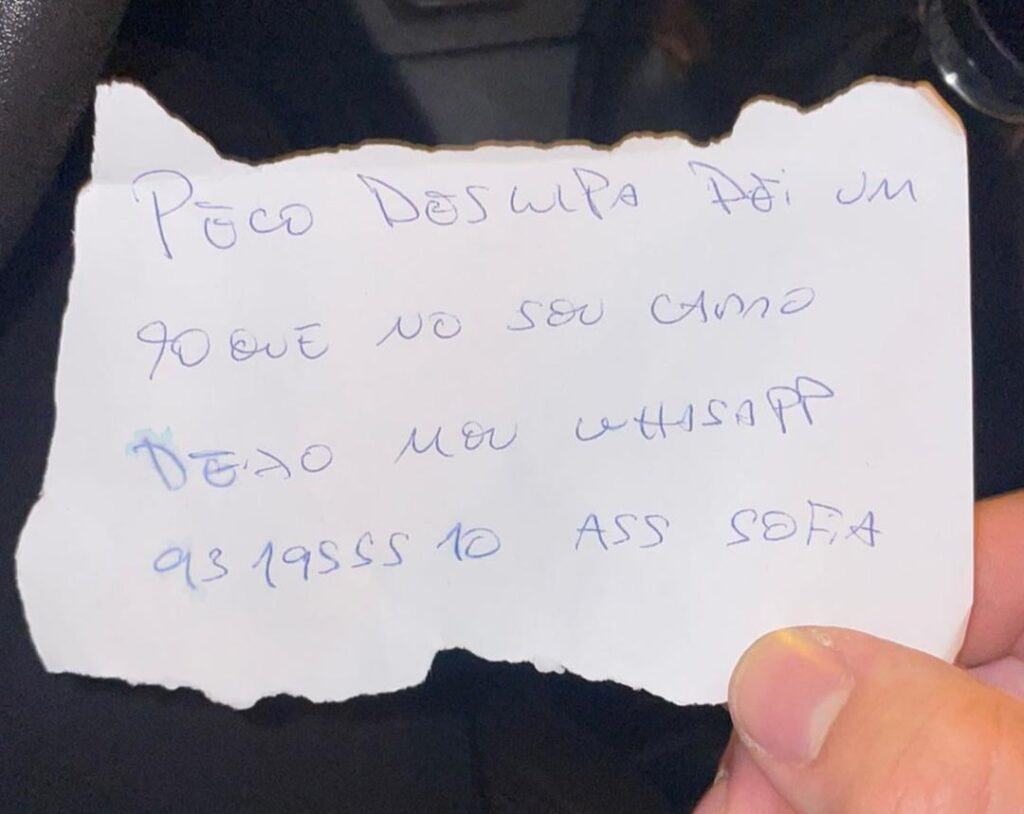 PEÇO DESCULPA DEI UM
TOQUE NO SEU CARRO
DEIXO MEU WHASAPP
931955510 ASS SOFIA